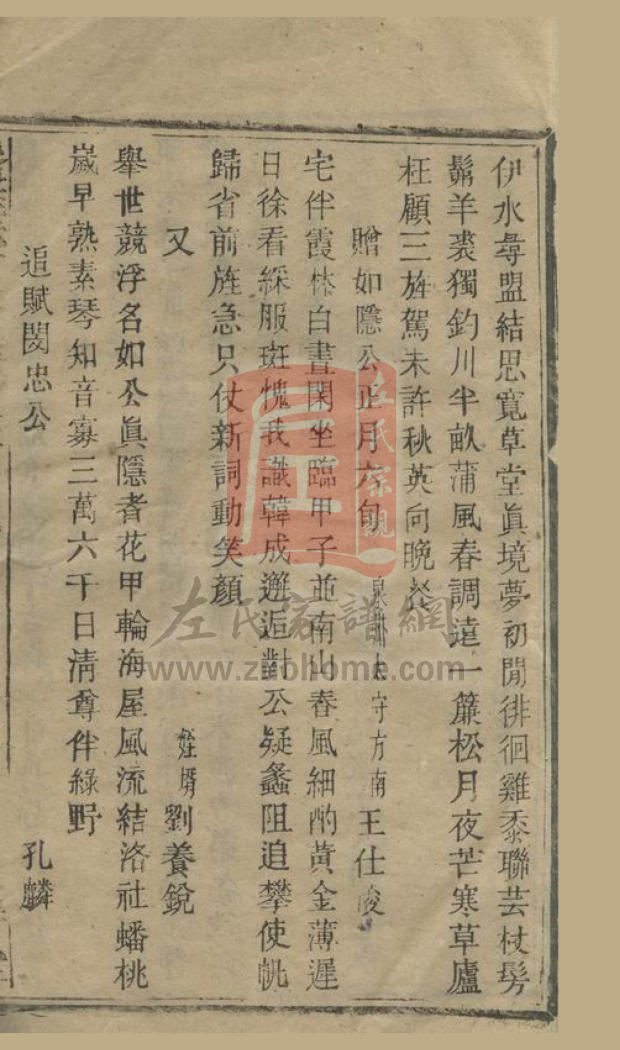 伊水尋盟結思寬草堂眞境夢初閒徘徊雞黍聯芸杖髣
髴羊裘獨釣川半畝蒲風春調遠一簾松月夜芒寒草廬
枉顧三旌駕未許秋英向晚餐
贈如隱公正月六旬 太守方南王仕浚
宅伴霞林白晝閑坐臨甲子並南山春風細酌黃金薄遲
日徐看綵服斑愧我識韓成邂逅對公疑蠡阻追攀使帆
歸省前旌急只仗新詞動笑顏
又 姪壻劉養銳
舉世競浮名如公眞隱者花甲輪海屋風流結洛社蟠桃
嵗早熟素琴知音寡三萬六千日淸尊伴綠野
追賦閔忠公 孔麟
左氏宗親
左氏家譜網
www.zuohome.com